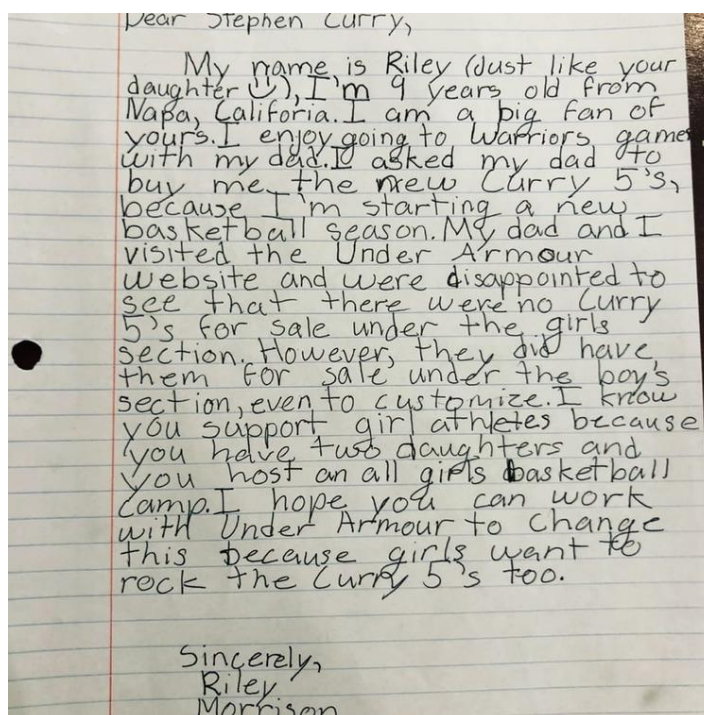 Dear Stephen Curry,
My name is Riley (Just like your
daughter ☺), I'm 9 years old from
Napa, Califoria. I am a big fan of
yours. I enjoy going to Warriors games
with my dad. I asked my dad to
buy me the new Curry 5's,
because I'm starting a new
basketball season. My dad and I
visited the Under Armour
website and were disappointed to
see that there were no Curry
5's for sale under the girls
section. However, they did have
them for sale under the boy's
section, even to customize. I know
you support girl athletes because
you have two daughters and
you host an all girls basketball
camp. I hope you can work
with Under Armour to change
this because girls want to
rock the Curry 5's too.
Sincerely,
Riley
Morrison